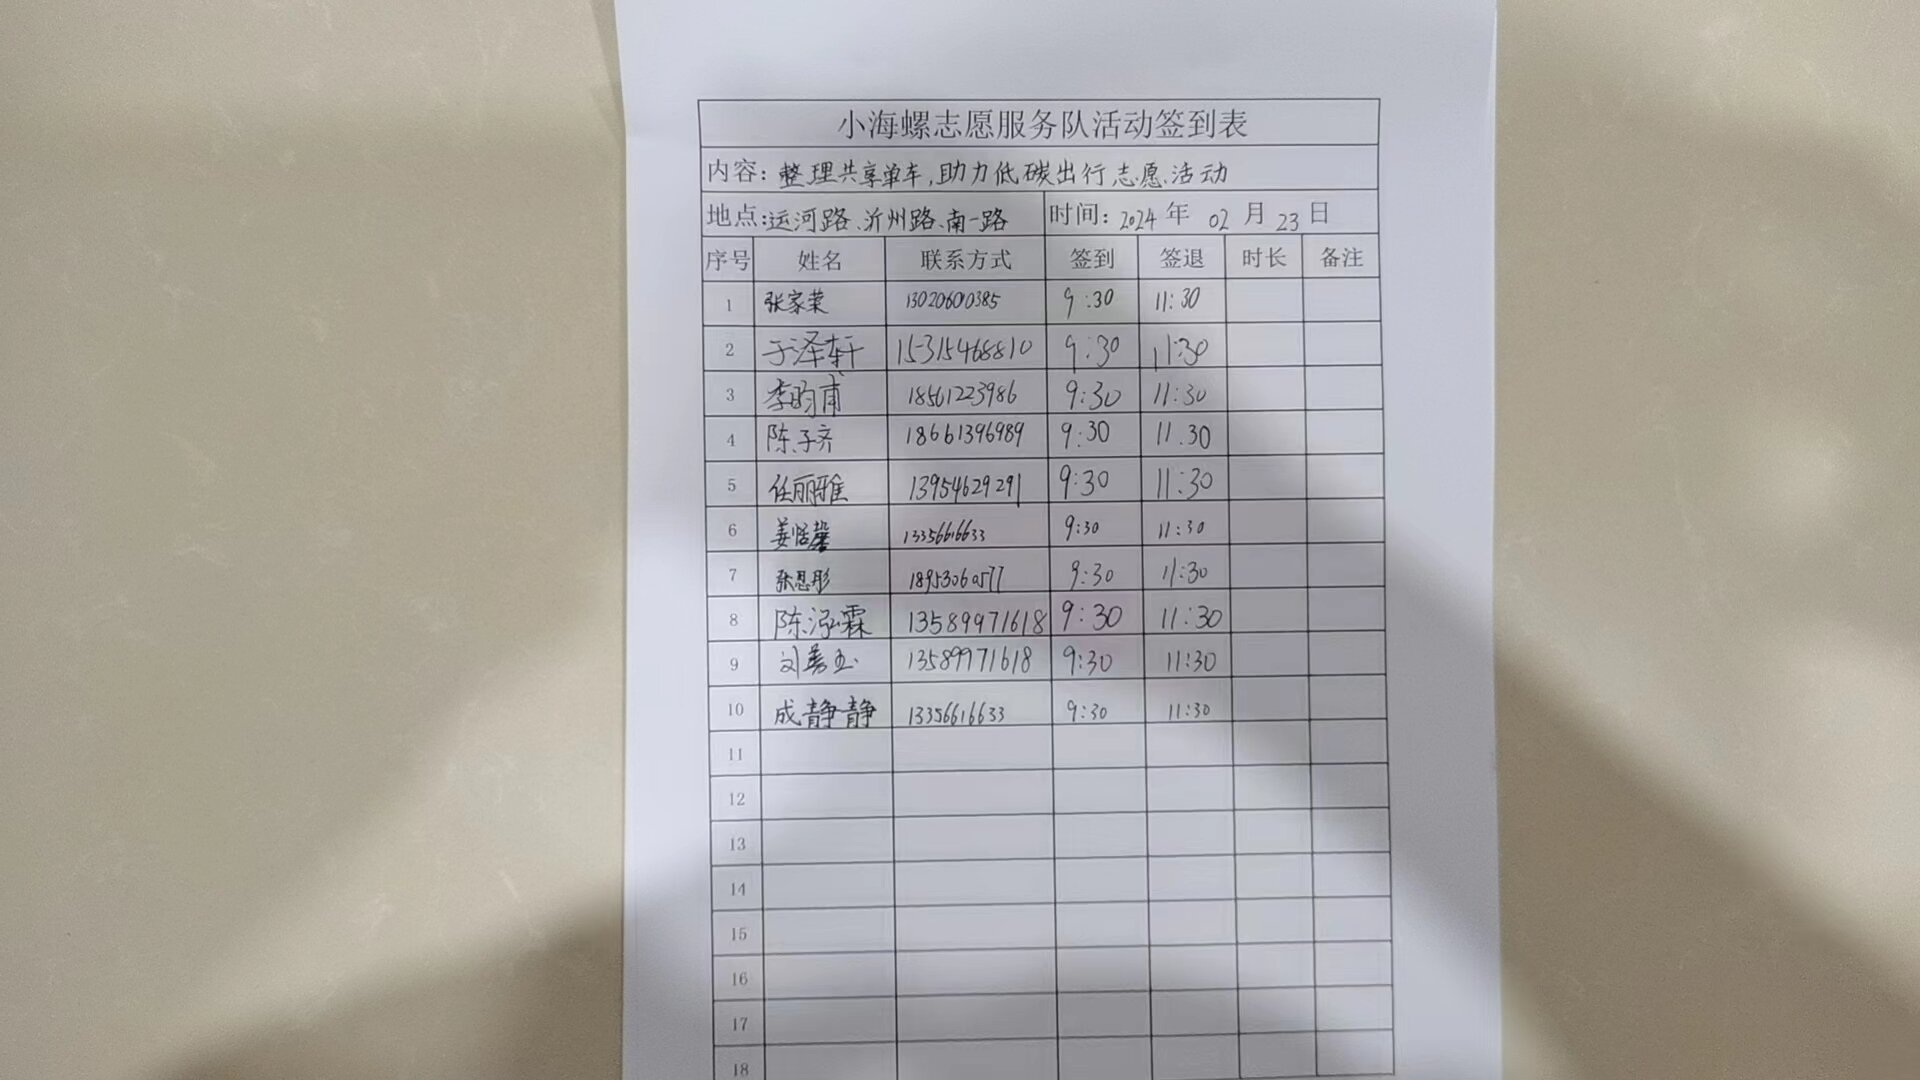 小海螺志愿服务队活动签到表
内容: 整理共享单车,助力低碳出行志愿活动
地点:运河路、沂州路、南一路 时间: 2024 年 02 月 23 日
序号 姓名 联系方式 签到 签退 时长 备注
1 张家荣 13020600385 9:30 11:30
2 于泽轩 15315468810 9:30 11:30
3 李昀甫 18561223986 9:30 11:30
4 陈子齐 18661396989 9:30 11.30
5 任丽雅 13954629291 9:30 11:30
6 姜恬馨 13356616633 9:30 11:30
7 张思彤 18953060577 9:30 11:30
8 陈泓霖 13589971618 9:30 11:30
9 13589971618 9:30 11:30
10 成静静 13356616633 9:30 11:30
11
12
13
14
15
16
17
18